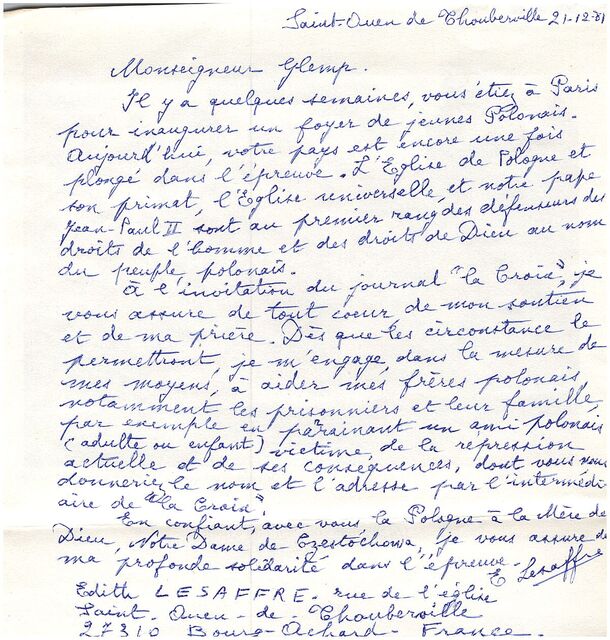 Saint-Ouen de Thouberville 21-12-81
Monseigneur Glemp.
Il y a quelques semaines, vous étiez à Paris
pour inaugurer un foyer de jeunes Polonais.
Aujourd'hui, votre pays est encore une fois
plongé dans l'épreuve. L'Eglise de Pologne et
son primat, l'Eglise universelle, et notre pape
Jean-Paul II sont au premier rang des défenseurs des
droits de l'homme et des droits de Dieu au nom
du peuple polonais.
A l'invitation du journal "la Croix", je
vous assure de tout coeur de mon soutien
et de ma prière. Dès que les circonstance le
permettront, je m'engage, dans la mesure de
mes moyens, à aider mes frères polonais,
notamment les prisonniers et leur famille,
par exemple en parrainant un ami polonais
(adulte ou enfant) victime, de la repression
actuelle et de ses conséquences, dont vous nous
donneriez le nom et l'adresse par l'intermédi-
aire de "la Croix".
En confiant, avec vous la Pologne à la Mère de
Dieu, Notre Dame de Czestochowa, je vous assure de
ma profonde solidarité dans l'épreuve.
E Lesaffre
Edith LESAFFRE. rue de l'église
Saint. Ouen-de Thouberville
27310 Bourg-Achard - France